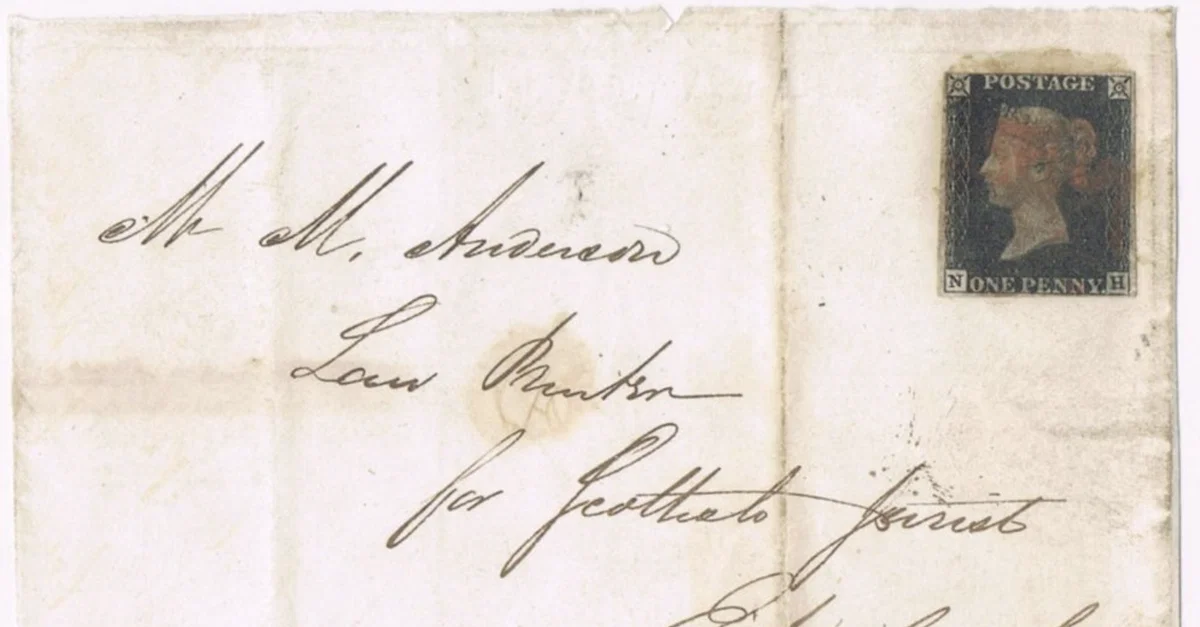 POSTAGE
N ONE PENNY. H
Mr M. Anderson
Law Printer
for Scottish Jurist